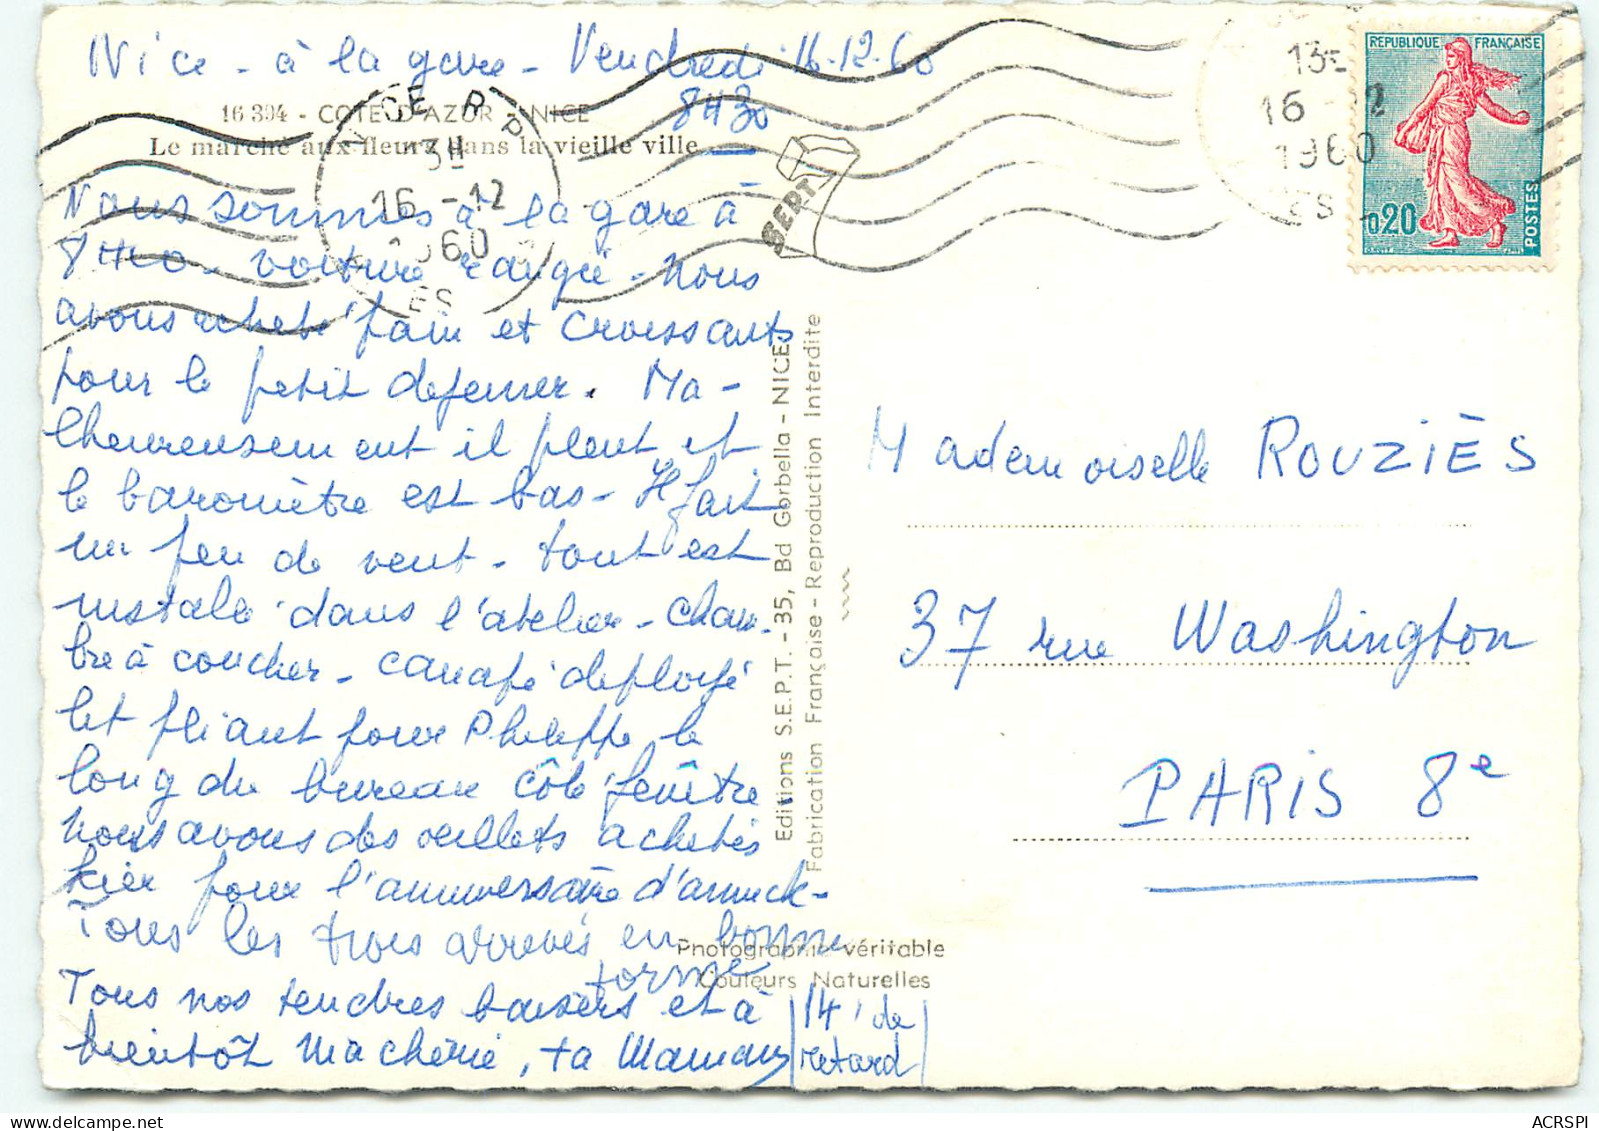 Nice - à la gare - Vendredi 16-12-60
8H30
16 394 - COTE D'AZUR - NICE
Le marché aux fleurs dans la vieille ville
Nous sommes à la gare à
8H20 - voiture rangée - nous
avons acheté pain et croissants
pour le petit dejeuner. Ma-
lheureusement il pleut et
le baromètre est bas - Il fait
un peu de vent - tout est
installé dans l'atelier - cham-
bre à coucher - canapé déployé
lit pliant pour Philippe le
long du bureau côté fenêtre
Nous avons des oeillets achetés
hier pour l'anniversaire d'annick -
Tous les trois arrivés en bonne
forme
Tous nos tendres baisers et à
bientôt ma chérie, ta Maman
14' de
retard
SEPT
Editions S.E.P.T. - 35, Bd Gorbella - NICE
Fabrication Française - Reproduction Interdite
Photographie véritable
Couleurs Naturelles
NICE R P
16 -12
1960
13
16 -12
1960
REPUBLIQUE FRANÇAISE
0,20
POSTES
Mademoiselle ROUZIÈS
37 rue Washington
PARIS 8e
ACRSPI